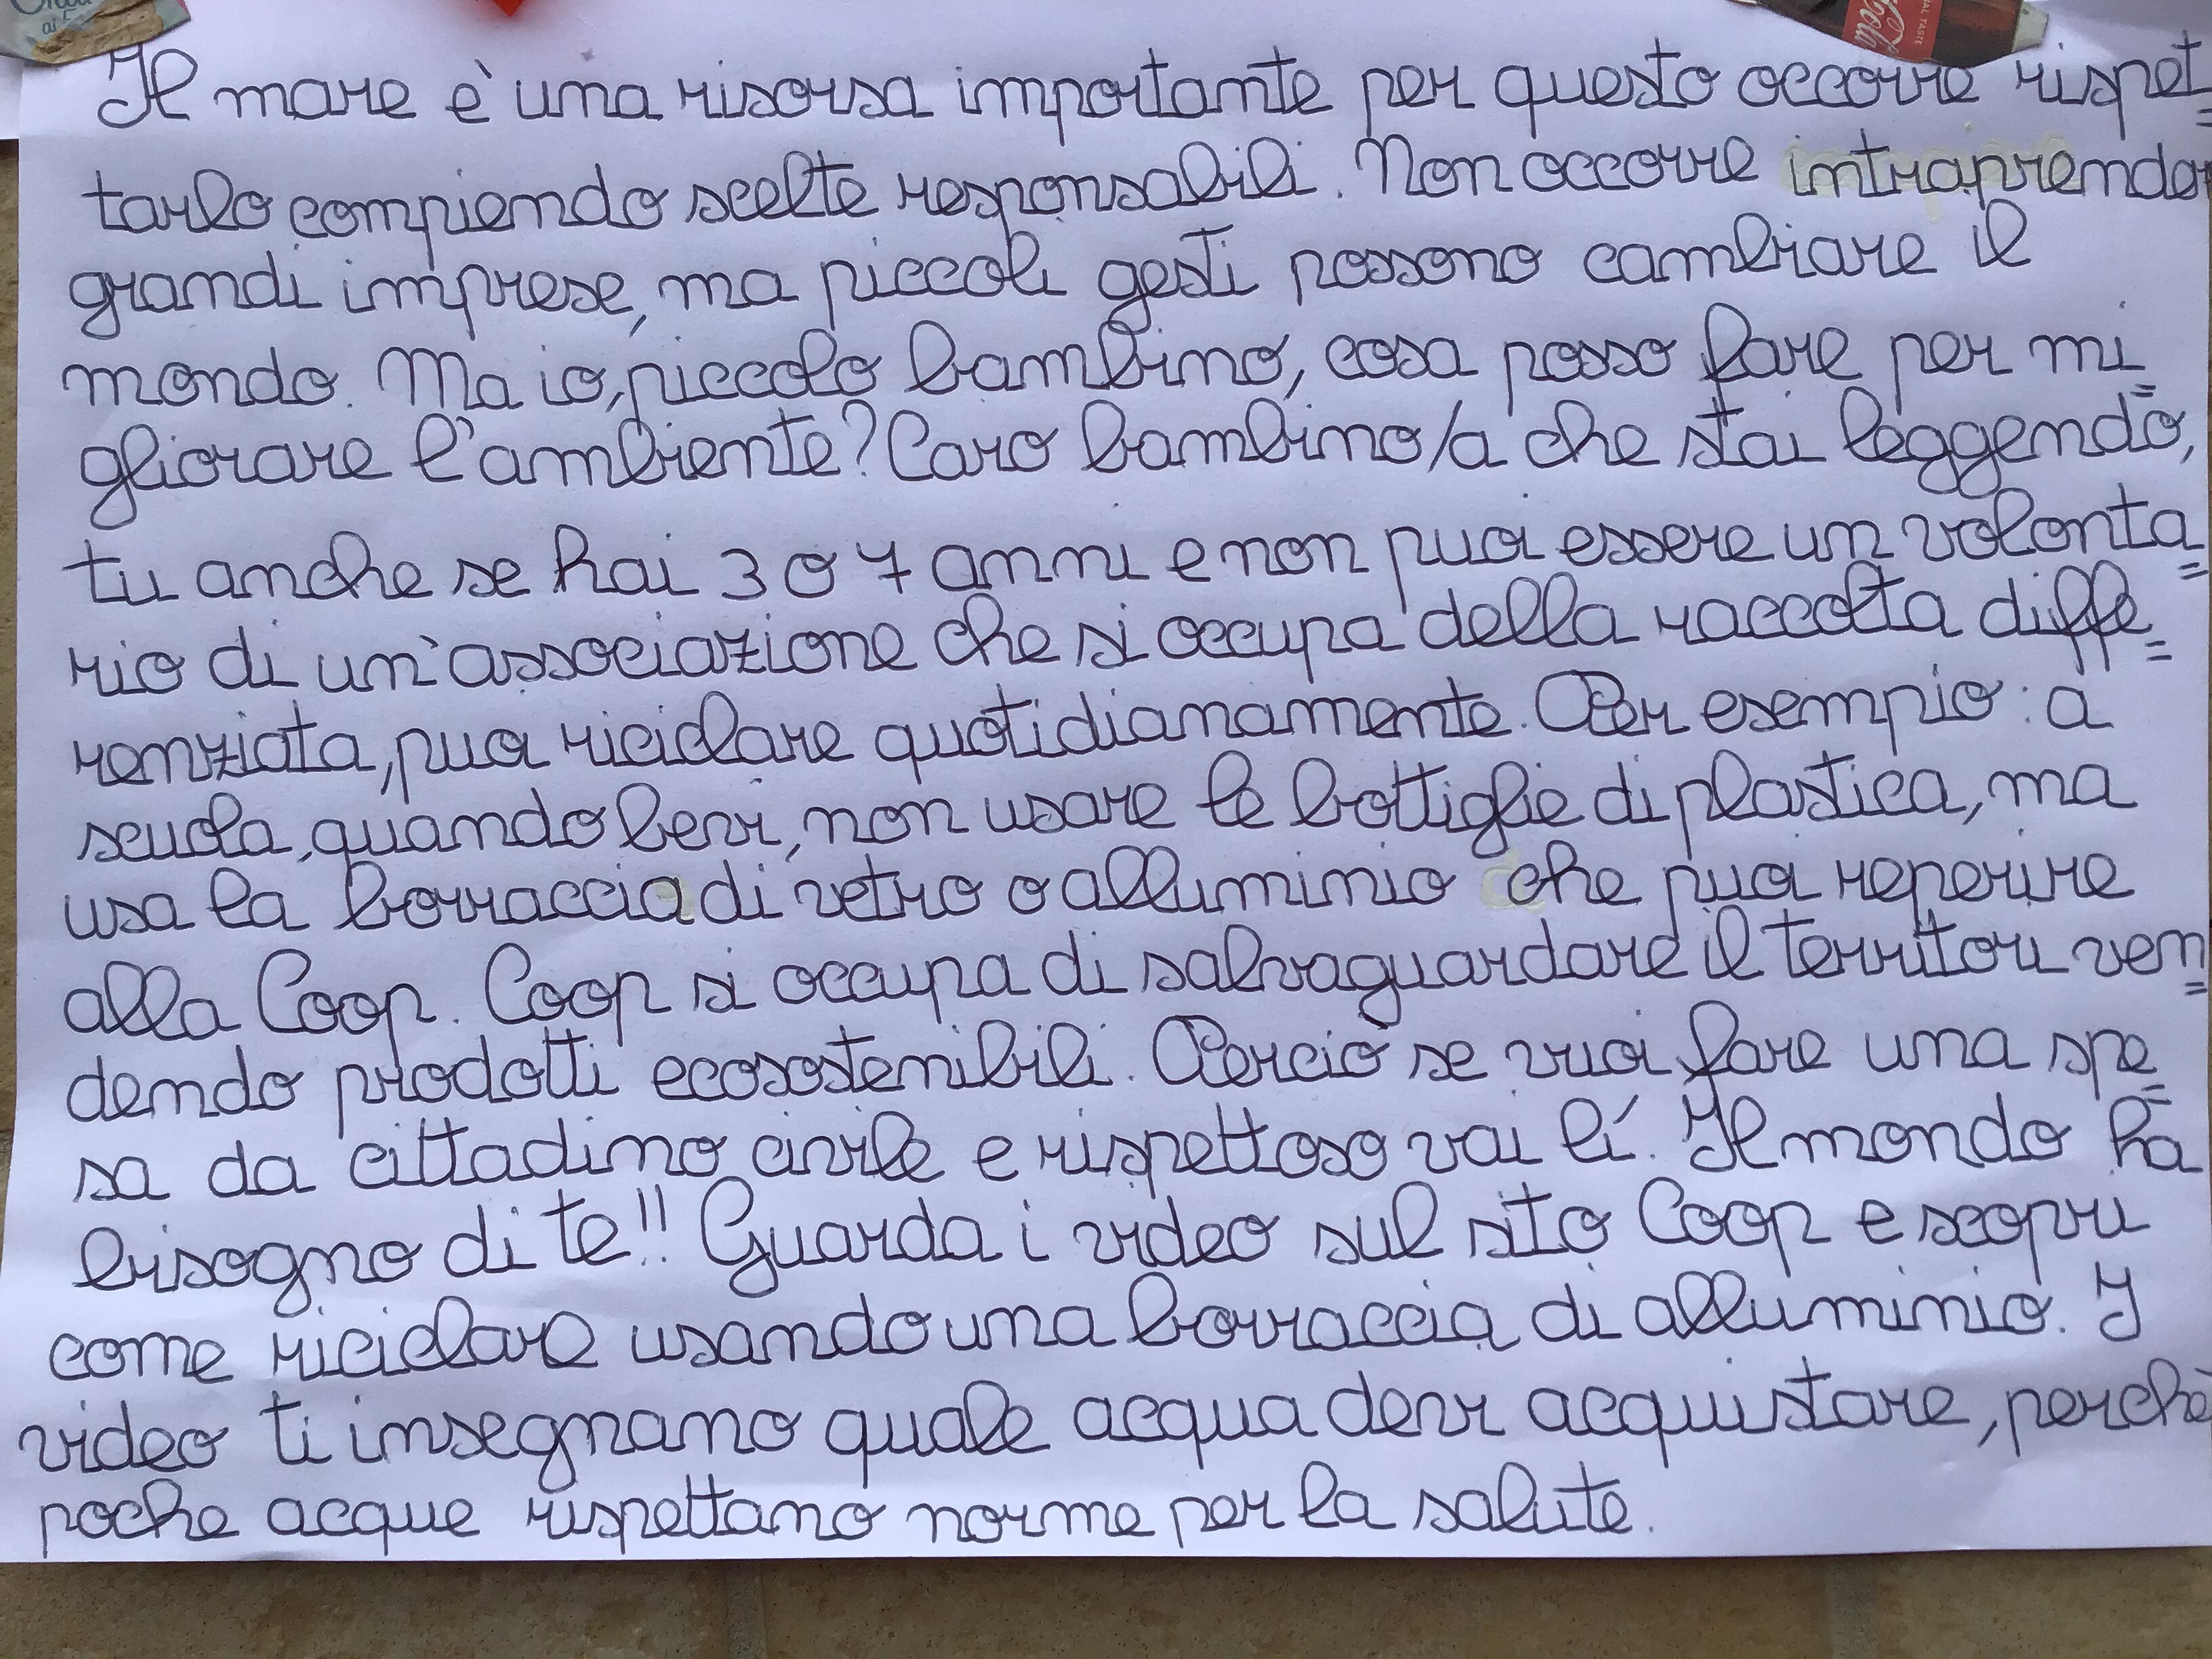 Il mare è una risorsa importante per questo occorre rispet=
tarlo compiendo scelte responsabili. Non occorre intraprender
grandi imprese, ma piccoli gesti possono cambiare il
mondo. Ma io, piccolo bambino, cosa posso fare per mi=
gliorare l'ambiente? Caro bambino/a che stai leggendo,
tu anche se hai 3 o 7 anni e non puoi essere un volonta=
rio di un'associazione che si occupa della raccolta diffe=
renziata, puoi riciclare quotidianamente. Per esempio: a
scuola, quando bevi, non usare le bottiglie di plastica, ma
usa la borraccia di vetro o alluminio che puoi reperire
alla Coop. Coop si occupa di salvaguardare il territori ven=
dendo prodotti ecosostenibili. Perciò se vuoi fare una spe=
sa da cittadino civile e rispettoso vai lí. Il mondo ha
bisogno di te!! Guarda i video sul sito Coop e scopri
come riciclare usando una borraccia di alluminio. I
video ti insegnano quale acqua devi acquistare, perchè
poche acque rispettano norme per la salute.